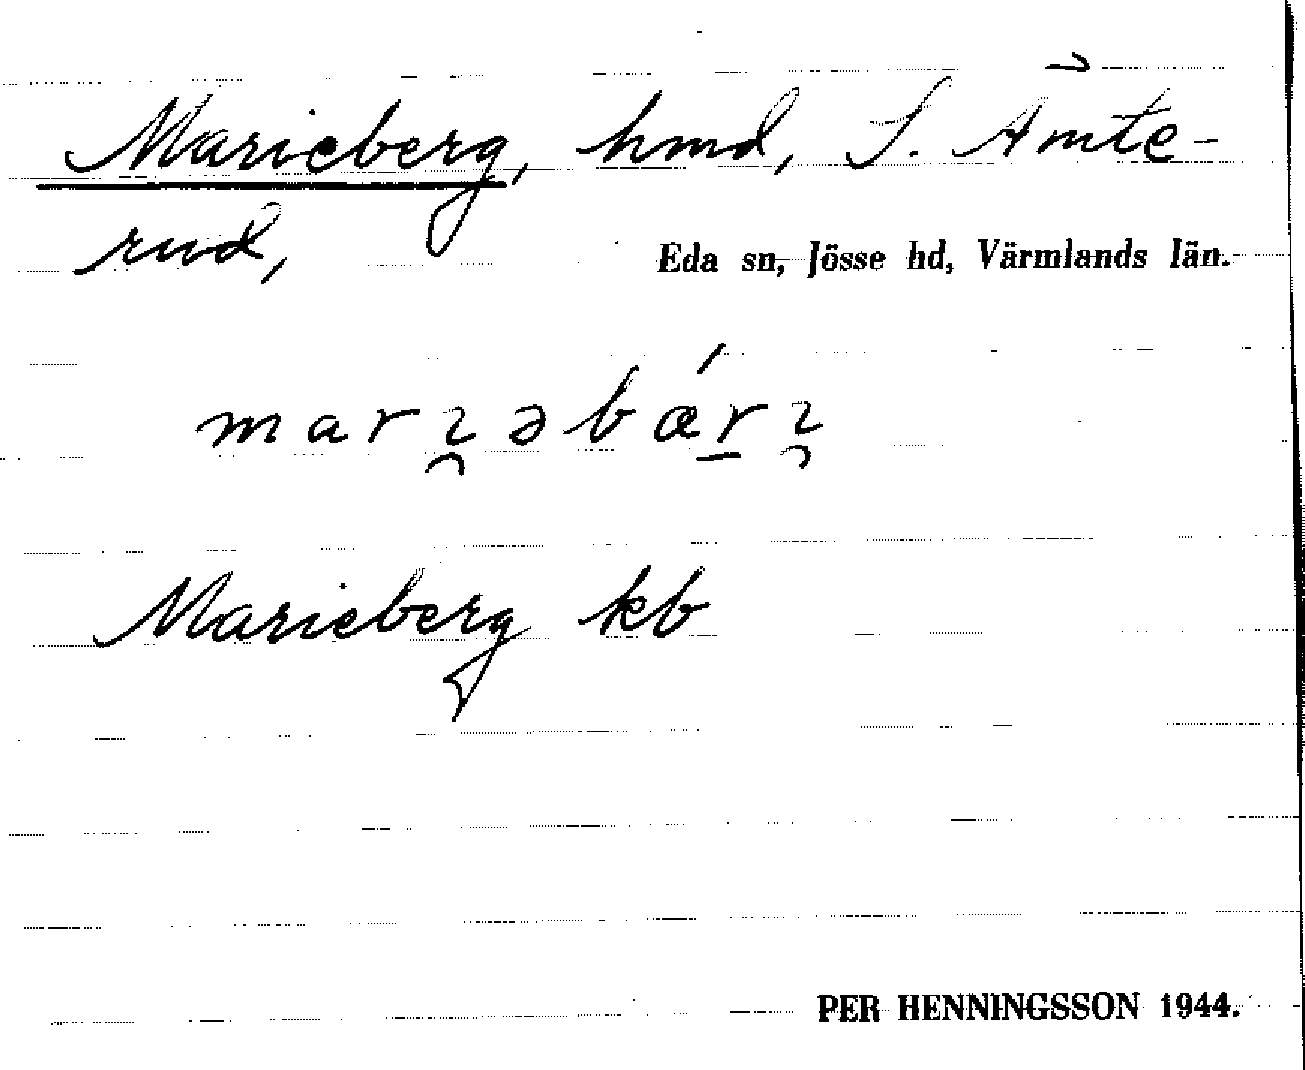 Marieberg, hmd, S. Åmte-
rud,
Eda sn, Jösse hd, Värmlands län.
Marieberg kb
PER HENNINGSSON 1944.